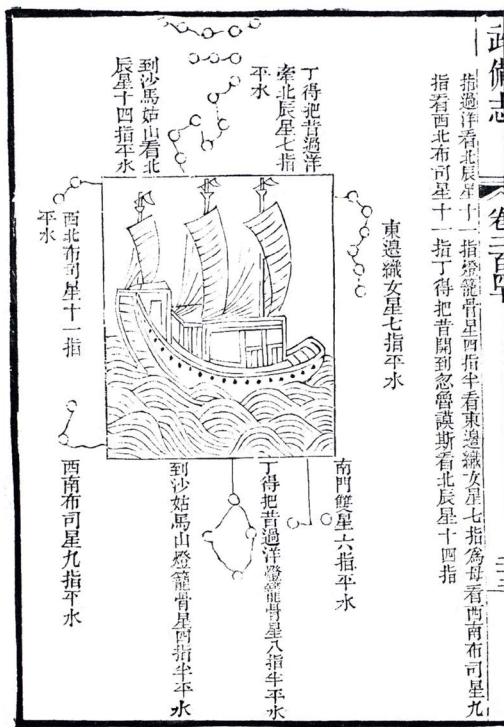 武備志
卷二百四十
指過洋看北辰星十一指燈籠骨星四指半看東邊織女星七指爲母看西南布司星九
指看西北布司星十一指丁得把昔開到忽魯謨斯看北辰星十四指
東邊織女星七指平水
丁得把昔過洋
牽北辰星七指
平水
到沙馬姑山看北
辰星十四指平水
西北布司星十一指
平水
南門雙星六指平水
丁得把昔過洋燈籠骨星八指半平水
到沙姑馬山燈籠骨星四指半平水
西南布司星九指平水